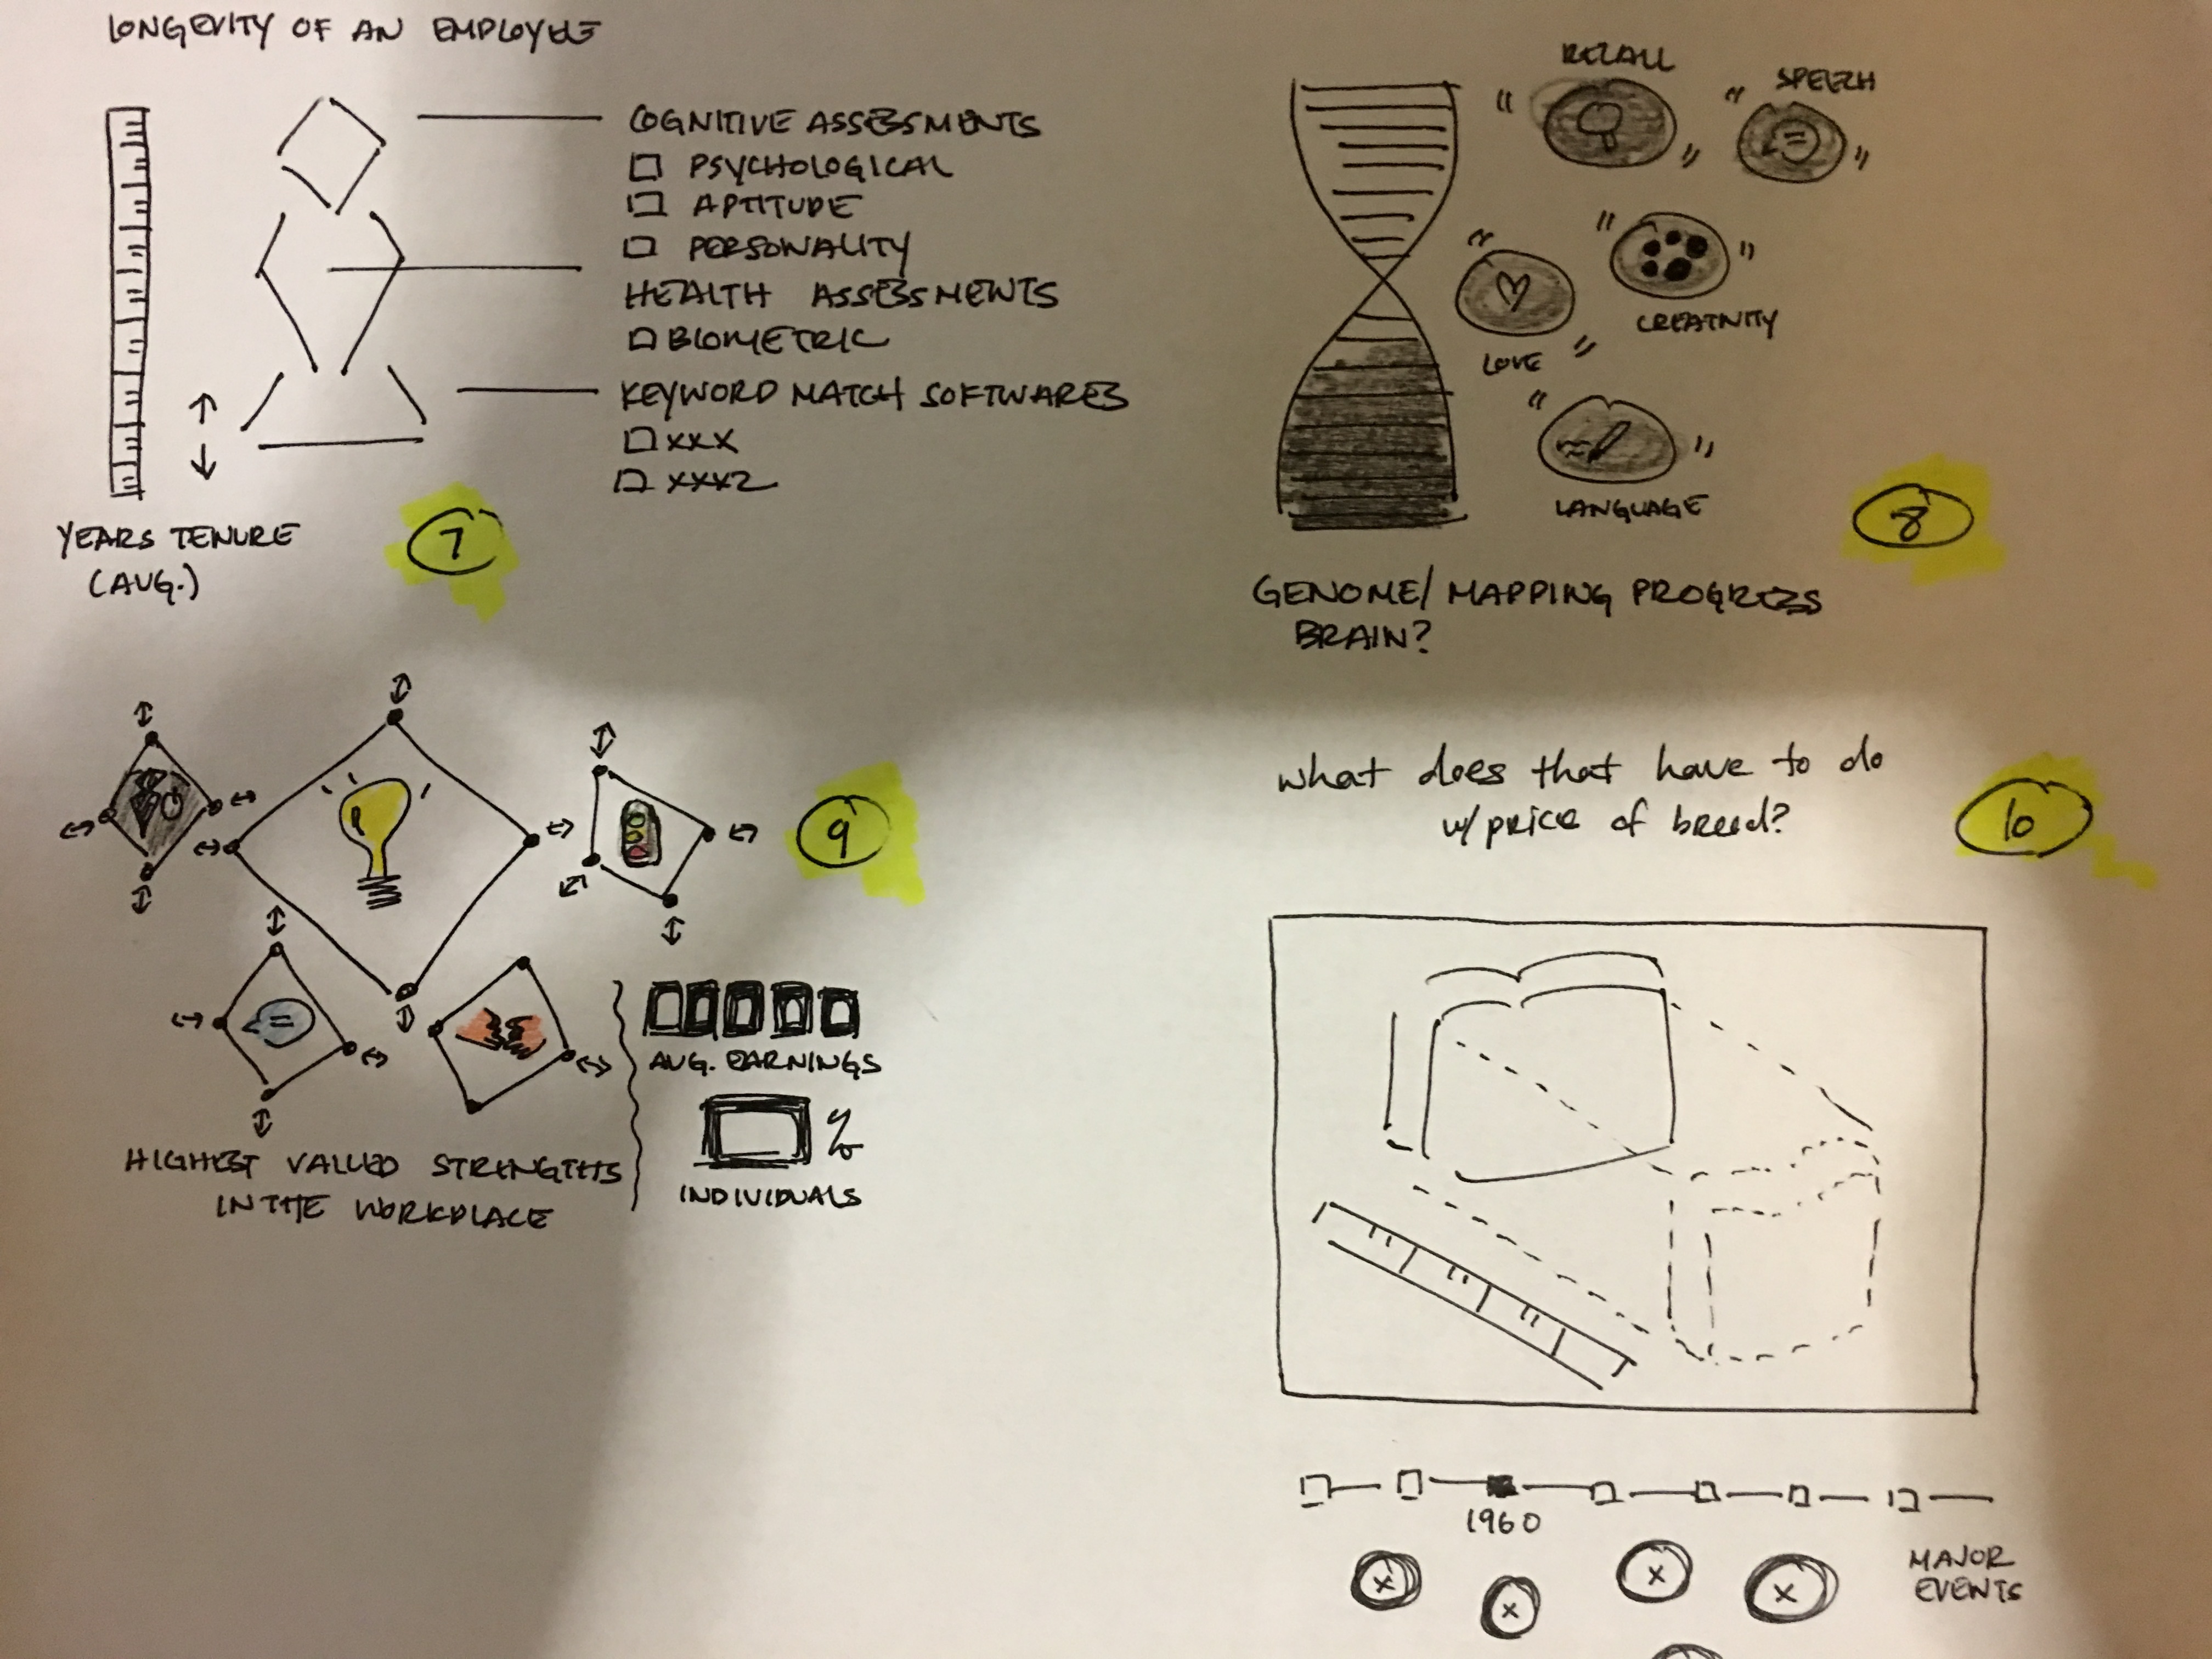 LONGEVITY OF AN EMPLOYEE
COGNITIVE ASSESSMENTS
PSYCHOLOGICAL
APTITUDE
PERSONALITY
HEALTH ASSESSMENTS
BIOMETRIC
KEYWORD MATCH SOFTWARES
XXX
XXX2
YEARS TENURE
(AVG.)
7
RECALL
SPEECH
LOVE
CREATIVITY
LANGUAGE
8
GENOME/MAPPING PROGRESS
BRAIN?
9
HIGHEST VALUED STRENGTHS
IN THE WORKPLACE
AVG. EARNINGS
%
INDIVIDUALS
What does that have to do
w/ price of breed?
10
1960
X
X
X
X
MAJOR
EVENTS